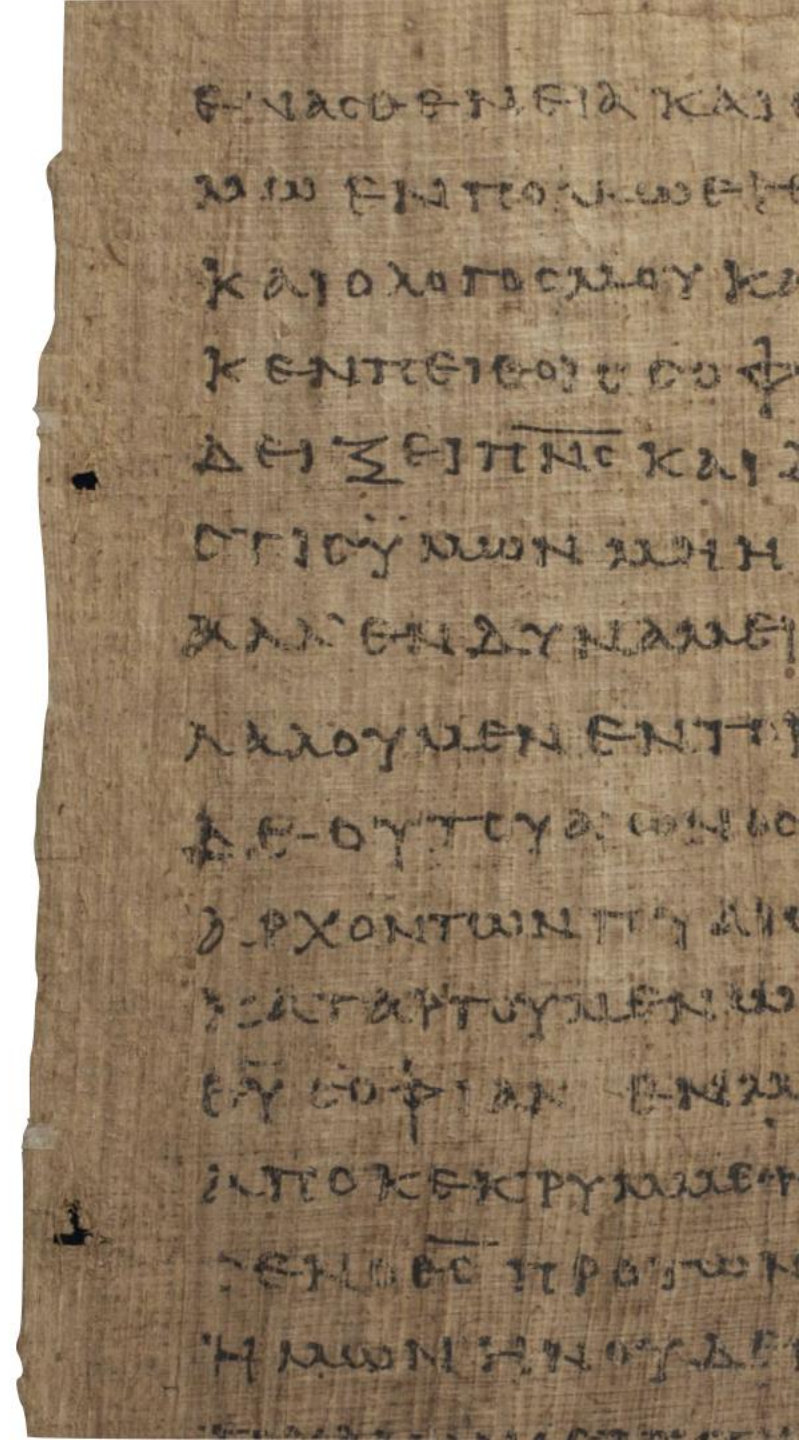 ΕΝ ΑϹΘΕΝΕΙΑ ΚΑΙ
ΜΩ ΕΝ ΠΟΛΛΩ ΕΓΕ
ΚΑΙ Ο ΛΟΓΟϹ ΜΟΥ ΚΑ
Κ ΕΝ ΠΕΙΘΟΙϹ ϹΟΦ
ΔΕΙΞΕΙ Π̅Ν̅Ϲ̅ ΚΑΙ Δ
ϹΤΙϹ ΫΜΩΝ ΜΗ Η
ΑΛΛ ΕΝ ΔΥΝΑΜΕΙ
ΛΑΛΟΥΜΕΝ ΕΝ ΤΟΙ
ΔΕ ΟΥ ΤΟΥ ΑΙΩΝΟϹ
ΑΡΧΟΝΤΩΝ ΤΟΥ ΑΙΩ
ΚΑΤΑΡΓΟΥΜΕΝΩ
Θ̅Υ̅ ϹΟΦΙΑΝ ΕΝ ΜΥ
ΑΠΟΚΕΚΡΥΜΜΕΝ
ϹΕΝ Ο Θ̅Ϲ̅ ΠΡΟ ΤΩΝ
ΗΜΩΝ ΗΝ ΟΥΔΕΙ